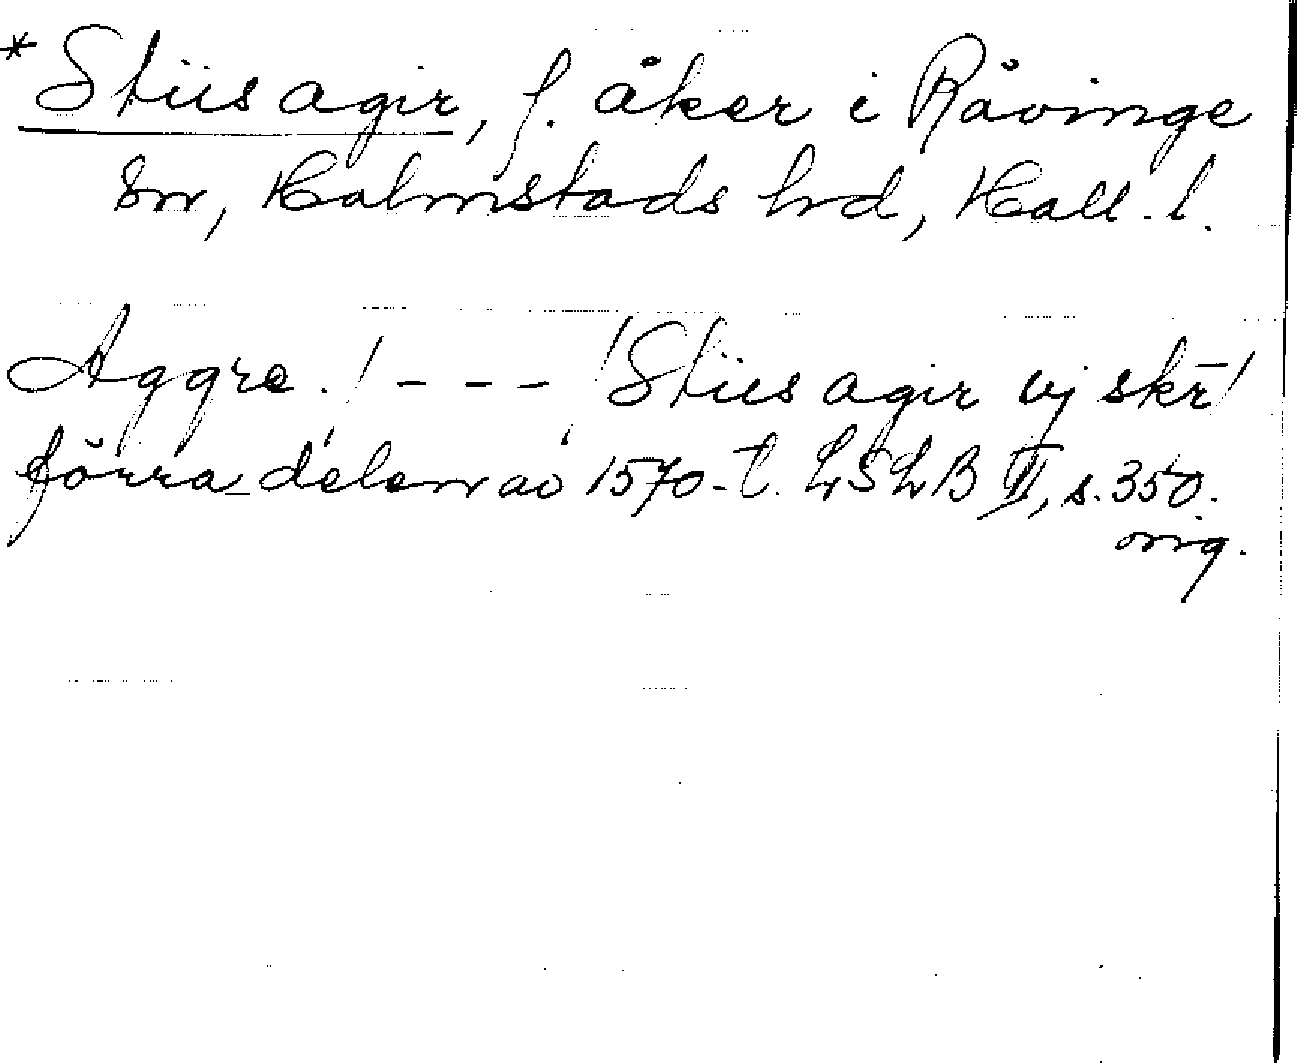 *Stiis agir, f. åker i Råvinge
sn, Halmstads hrd, Hall. l.
Aggre. / - - - / Stiis agir vj skr̄ /
förra delen av 1570-t. LSLB II, s. 350.
orig.